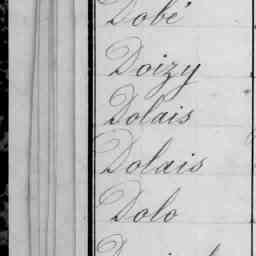 Dobé
Doizy
Dolais
Dolais
Dolo